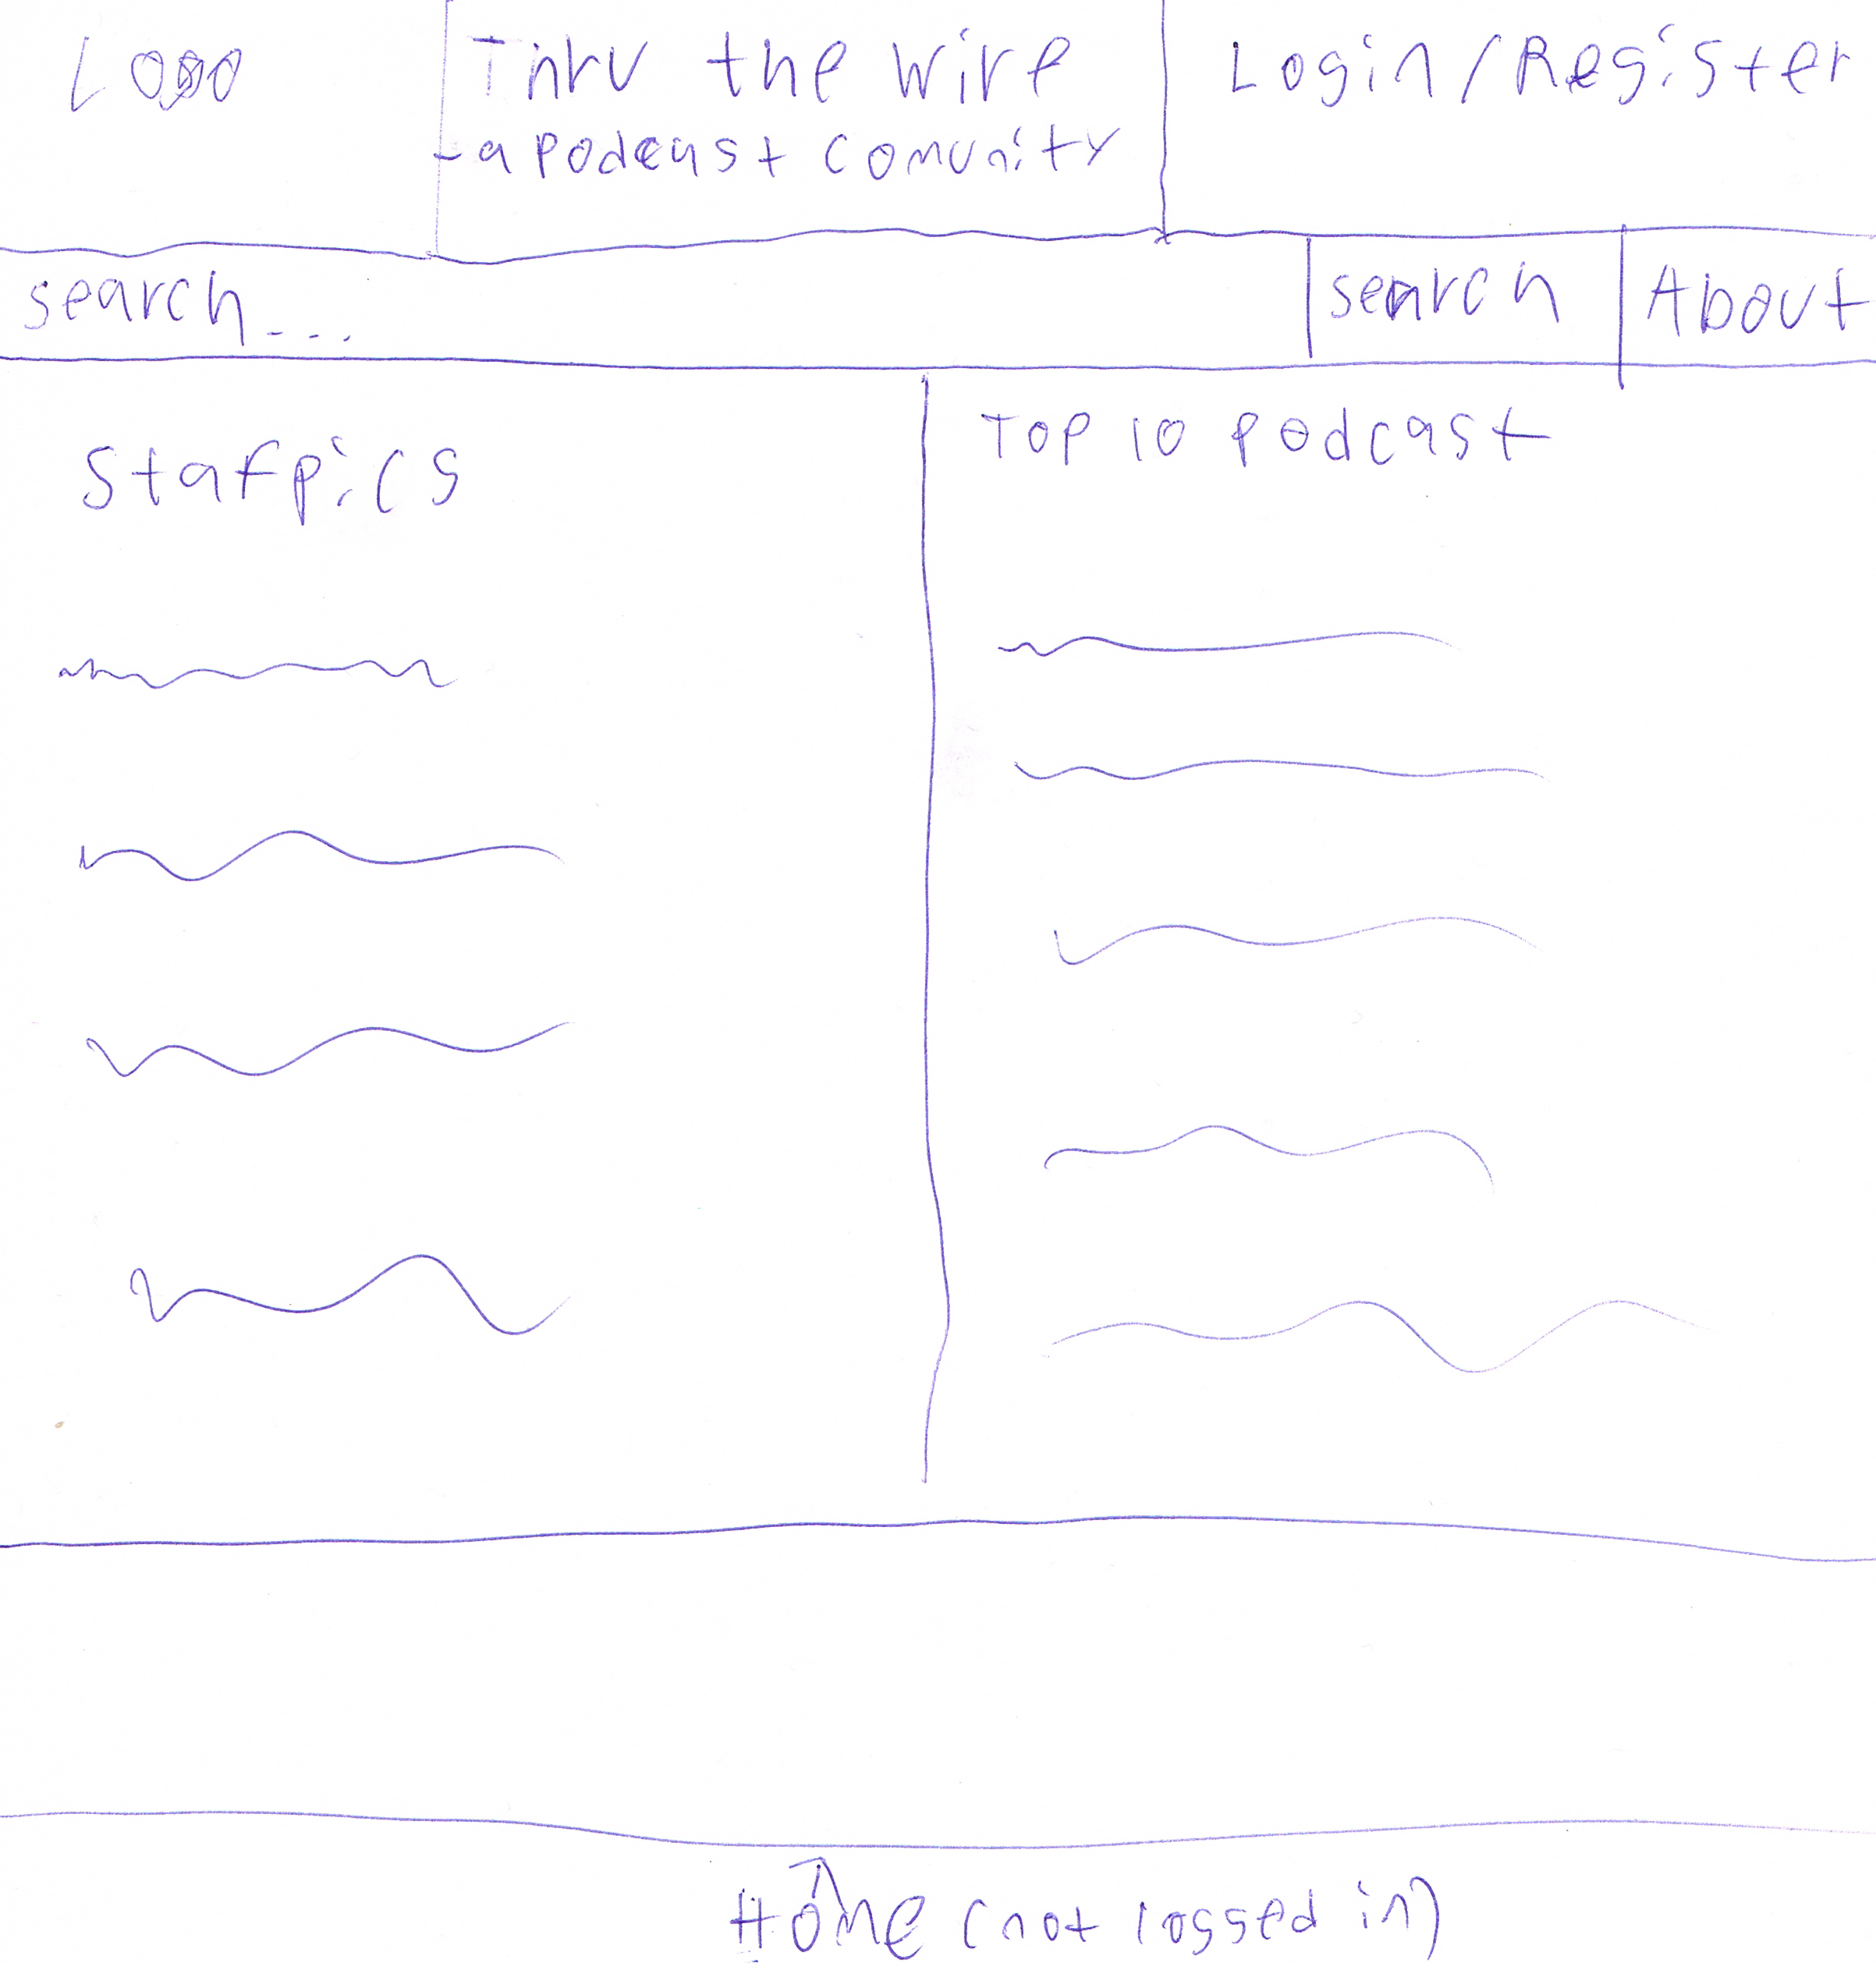 Logo
Thru the wire
-a podcast comunity
Login/Register
search...
search
About
Stafpics
Top 10 podcast
Home (not logged in)